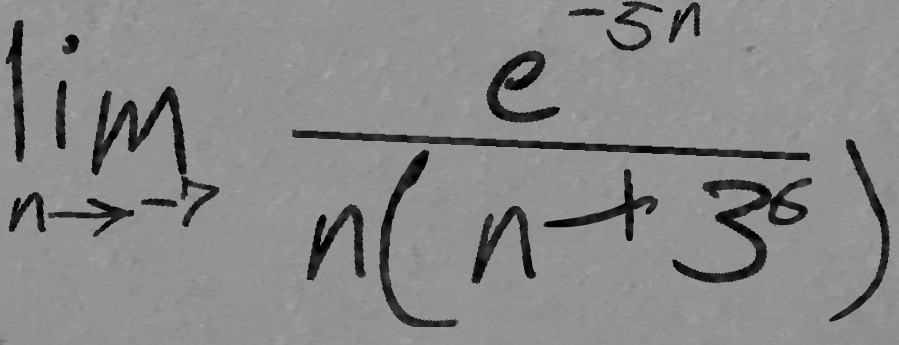 lim n→-7 e^{-5n} / n(n+3^6)